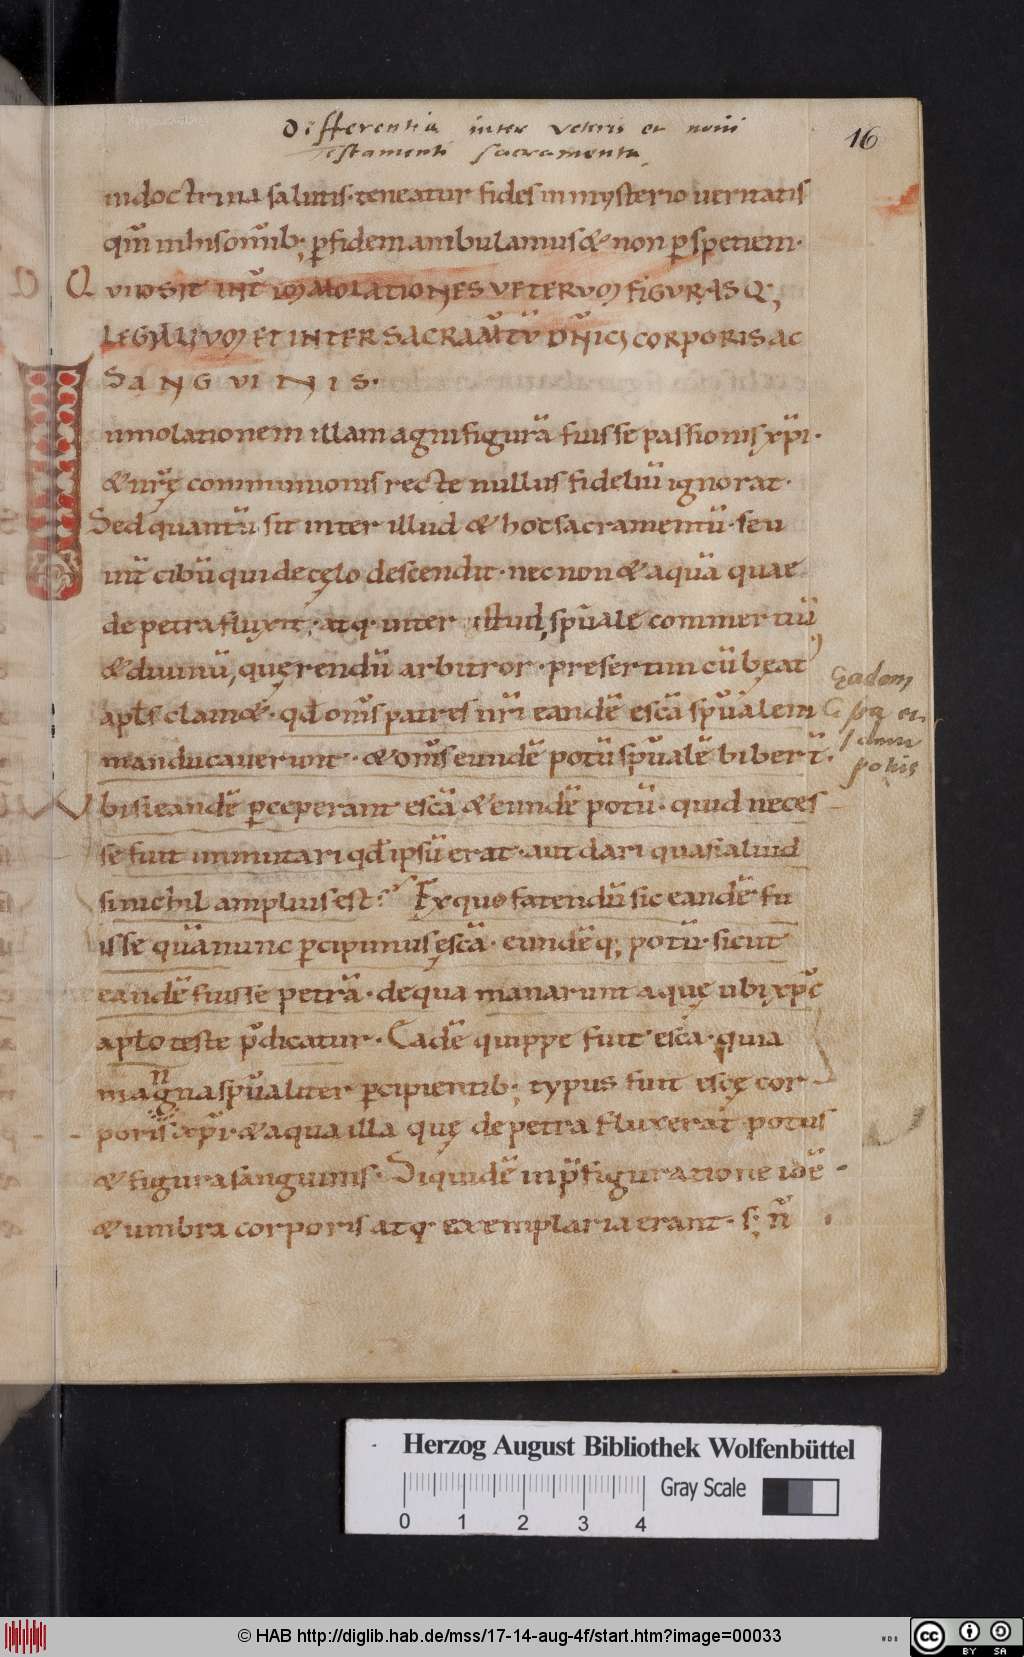 Differentia inter veteris et noui
Testamenti sacramenta
16
in doctrina salutis· teneatur fides in mysterio ueritatis
qm̄ in his omib; p̱ fidem ambulamus & non p̱ spetiem·
QVID SIT INT̄ IMMOLATIONES VETERVM FIGVRASQ;
LEGALIVM ET INTER SACRAM̄TŪ DN̄ICI CORPORIS AC
SANGVINIS·
Immolationem illam agni figurā fuisse passionis xp̄i·
& nr̄ę communionis recte nullus fideliū ignorat·
Sed quantū sit inter illud & hoc sacramentū· seu
int̄ cibū qui de cęlo descendit· nec non & aquā quae
de petra fluxit; atq· inter istud sp̄uale commertiū
& diuinū, quęrendū arbitror· presertim cū beat'
apl̄s clam&· qđ om̄s patres nr̄i eandē escā sp̄ualem
manducauerunt· & om̄s eundē potū sp̄ualē bibert̄·
Eadem
esca et
idem
potus
Vbi si eandē p̱ceperant escā & eundē potū· quid neces
se fuit inmutari qđ ipsū erat· aut dari quasi aliud
si nichil amplius est? Ex quo fatendū sic eandē fu
isse quā nunc p̱cipimus escā· eundēq; potū· sicut
eandē fuisse petrā· de qua manarunt aquę ubi xp̄c
apl̄o teste p̄dicatur· Eadē quippe fuit esca· quia
manna sp̄ualiter p̱cipientib; typus fuit escę cor
poris xp̄i & aqua illa quę de petra fluxerat potus
& figura sanguinis· Siquidē in p̄figuratione idē
& umbra corporis atq· exemplaria erant· s; n̄
Herzog August Bibliothek Wolfenbüttel
0 1 2 3 4
Gray Scale
© HAB http://diglib.hab.de/mss/17-14-aug-4f/start.htm?image=00033
WDB
cc
BY SA